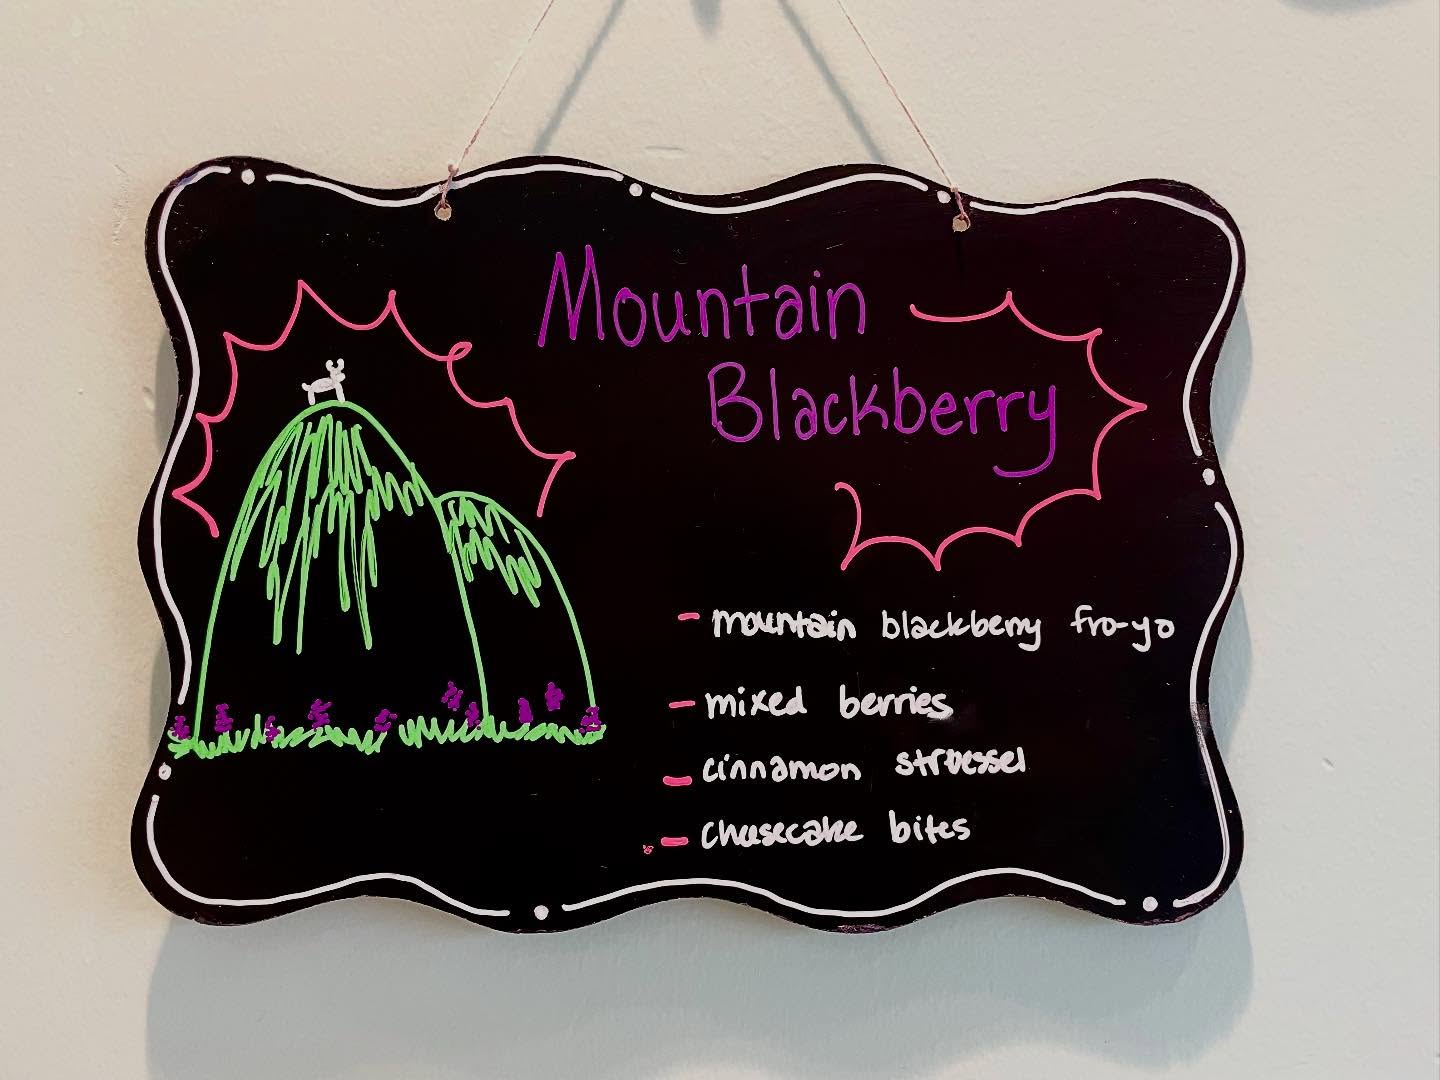 Mountain
Blackberry
- mountain blackberry fro-yo
- mixed berries
- cinnamon struessel
- cheesecake bites